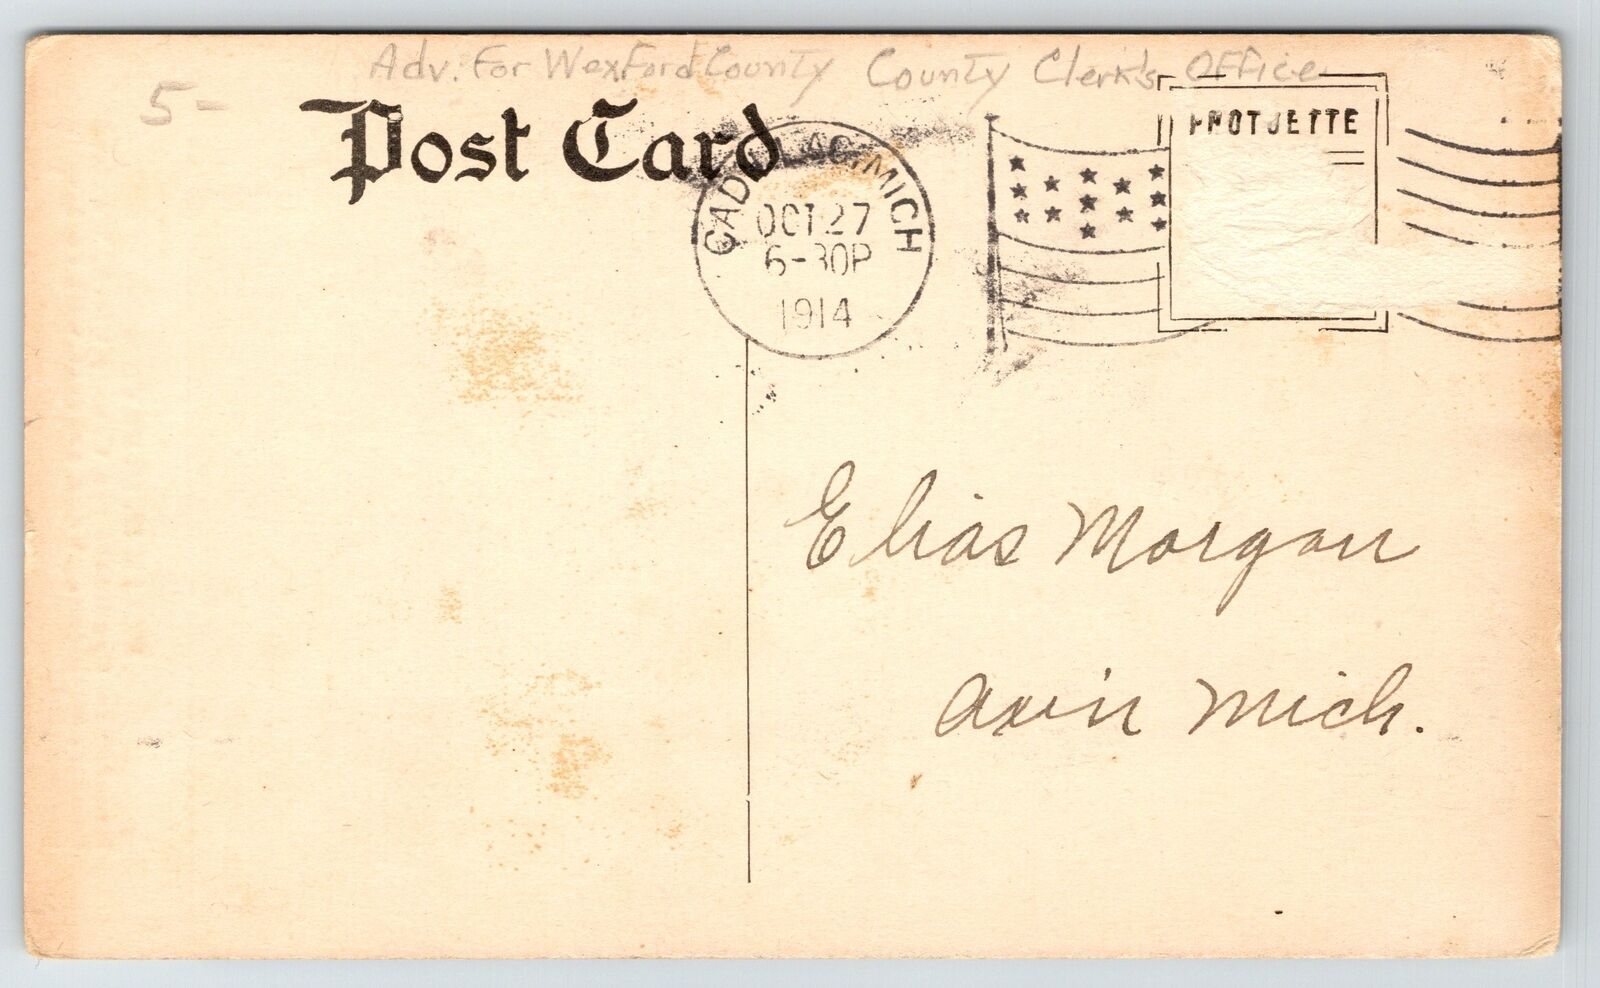 Adv. For Wexford County County Clerk's Office
5-
Post Card
CADILLAC, MICH
OCT 27
6-30P
1914
PHOTJETTE
Elias Morgan
Axin Mich.